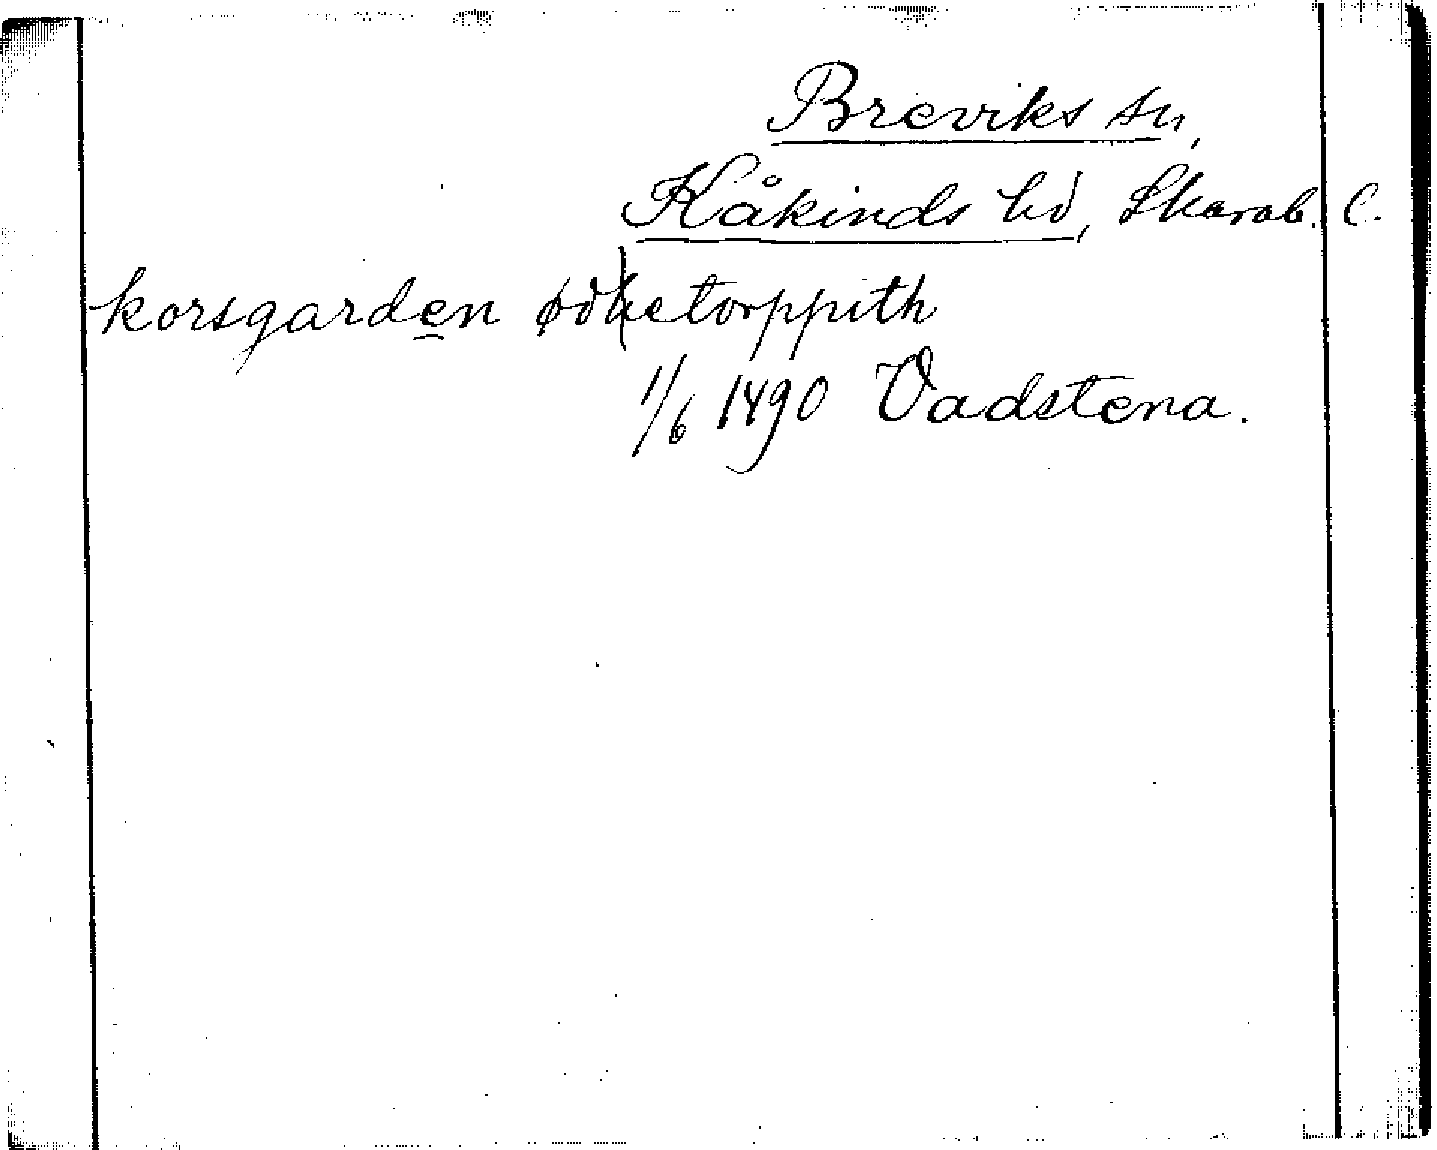 Breviks sn,
Kåkinds hd, Skarab. l.
korsgarden ødhetorppith
1/6 1490 Vadstena.